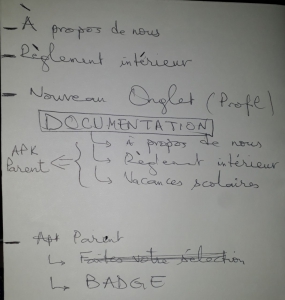 - À propos de nous
- Règlement intérieur
- Nouveau Onglet (Profil)
DOCUMENTATION
APK Parent
↳ à propos de nous
↳ Règleant intérieur
↳ Vacances scolaires
- Parent
↳ Faites votre sélection
↳ BADGE